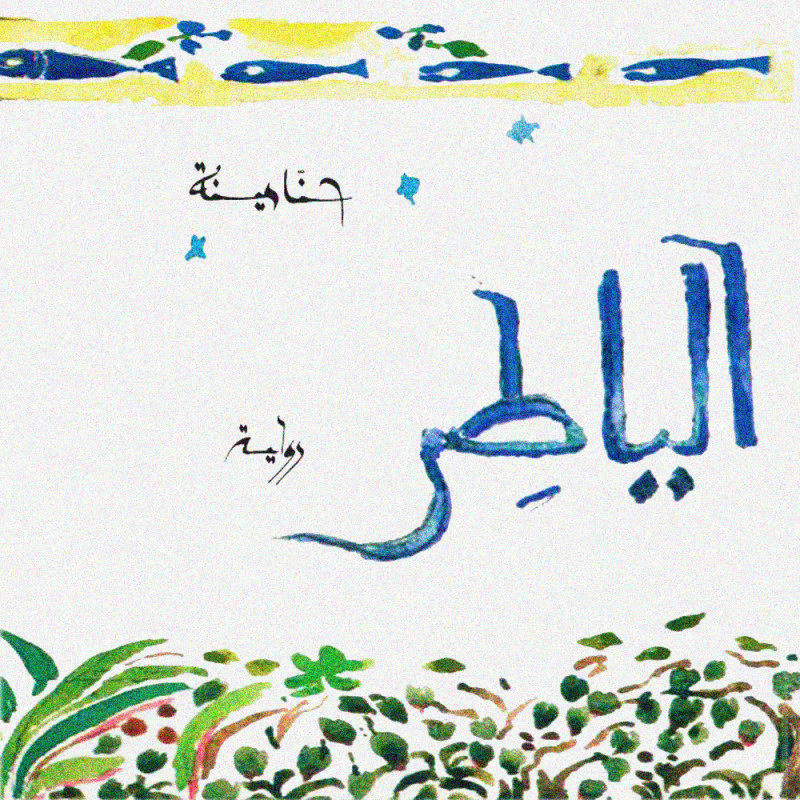 حنَّا مينُة
الياطِر
رواية